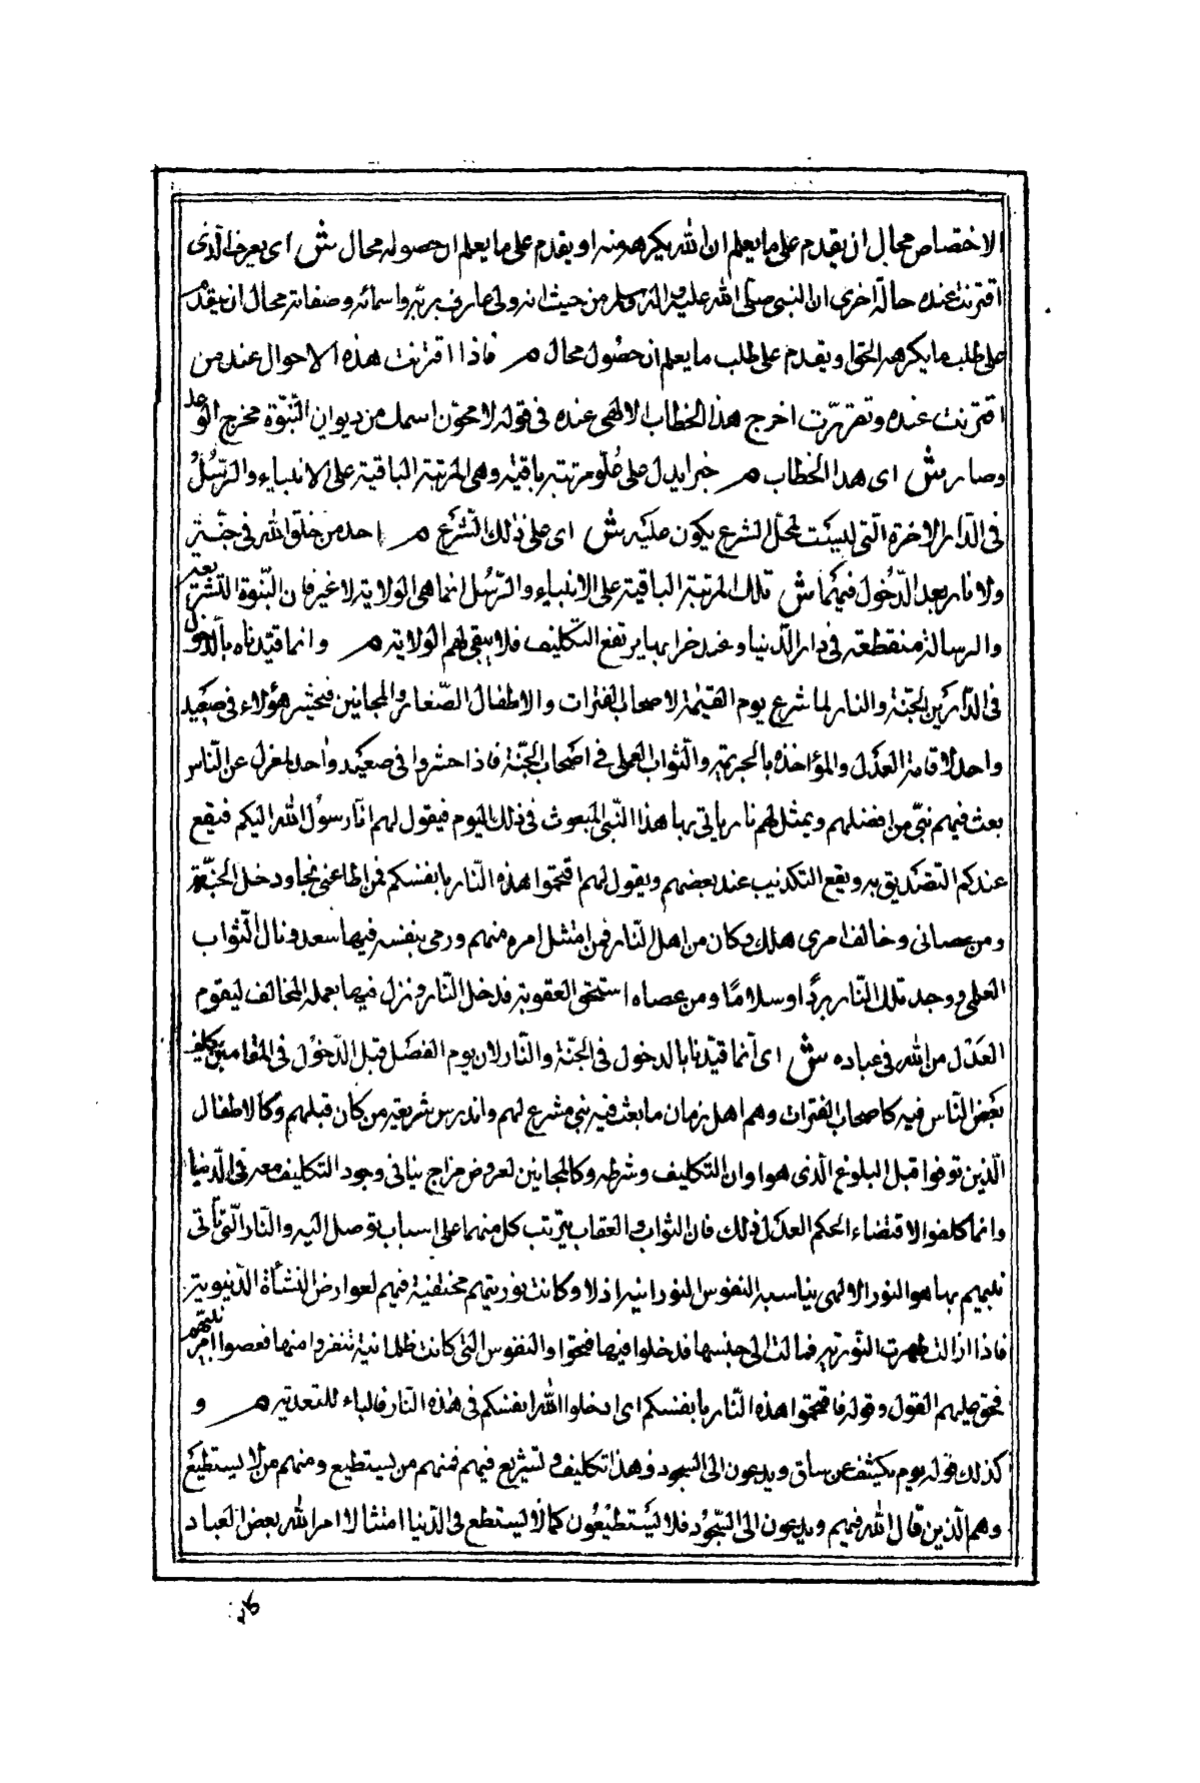 الاختصاص محال ان يقدم على ما يعلم ان الله يكرهه منه او يقدم على ما يعلم ان حصوله محال ش اى يعرف الذى
اقترنت عنده حالة اخرى ان النبى صلى الله عليه واله وسلم من حيث انه ولى عارف بربه واسمائه وصفاته محال ان يقدم
على طلب ما يكرهه الحق او يقدم على طلب ما يعلم ان حصول محال م فاذا اقترنت هذه الاحوال عند من
اقترنت عنده وتقررت اخرج هذا الخطاب الالهى عنده فى قوله لامحون اسمك من ديوان النبوة مخرج الوعد
وصار ش اى هذا الخطاب م خبرا يدل على علو مرتبة باقية وهى المرتبة الباقية على الانبياء والرسل
فى الدار الاخرة التى ليست لمحل لشرع يكون عليه ش اى على ذلك الشرع م احد من خلق الله فى جنة
ولا نار بعد الدخول فيهما ش تلك المرتبة الباقية على الانبياء والرسل انما هى الولاية لا غير فان النبوة التشريعية
والرسالة منقطعة فى دار الدنيا وعند خرابها يرتفع التكليف فلا يبقى لهم الولاية م وانما قيدناه بالدخول
فى الدارين الجنة والنار لما شرع يوم القيمة لاصحاب الفترات والاطفال الصغار والمجانين فيحشر هؤلاء فى صعيد
واحد لاقامة العدل والمؤاخذة بالجريمة والثواب العملى فى اصحاب الجنة فاذا حشروا فى صعيد واحد بمعزل عن الناس
بعث فيهم نبى من افضلهم ويمثل لهم نار ياتى بها هذا النبى المبعوث فى ذلك اليوم فيقول لهم انا رسول الله اليكم فيقع
عندكم التصديق به ويقع التكذيب عند بعضهم ويقول لهم اقتحموا هذه النار بانفسكم فمن اطاعنى نجا ودخل الجنة
ومن عصانى وخالف امرى هلك وكان من اهل النار فمن امتثل امره منهم ورمى بنفسه فيها سعد ونال الثواب
العملى ووجد تلك النار بردا وسلاما ومن عصاه استحق العقوبة فدخل النار ونزل فيها بعمله المخالف ليقوم
العدل من الله فى عباده ش اى انما قيدنا بالدخول فى الجنة والنار لان يوم الفصل قبل الدخول فى المقامين يكلف
بعض الناس فيه كاصحاب الفترات وهم اهل زمان ما بعث فيه نبى مشرع لهم واندرس شريعة من كان قبلهم وكالاطفال
الذين توفوا قبل البلوغ الذى هو اوان التكليف وشرطه وكالمجانين لعروض مزاج ينافى وجود التكليف معه فى الدنيا
وانما كلفوا لاقتضاء الحكم العدل ذلك فان الثواب والعقاب يترتب كل منهما على اسباب توصل اليه والنار التى تأتى
نبيهم بها هو النور الالهى يناسبه النفوس النورانية ازلا وكانت نوريتهم مختفية فيهم لعوارض النشأة الدنيوية
فاذا زالت ظهرت النورية فمالت الى جنسها فدخلوا فيها فنجوا والنفوس التى كانت ظلمانية تنفروا منها فعصوا امر نبيهم
فحق عليهم القول وقوله فاقتحموا هذه النار بانفسكم اى ادخلوا الله انفسكم فى هذه النار فالباء للتعدية م و
كذلك قوله يوم يكشف عن ساق ويدعون الى السجود فهذا تكليف وتشريع فيهم فمنهم من يستطيع ومنهم من لا يستطيع
وهم الذين قال الله فيهم ويدعون الى السجود فلا يستطيعون كما لا يستطع فى الدنيا امتثالا امر الله بعض العباد